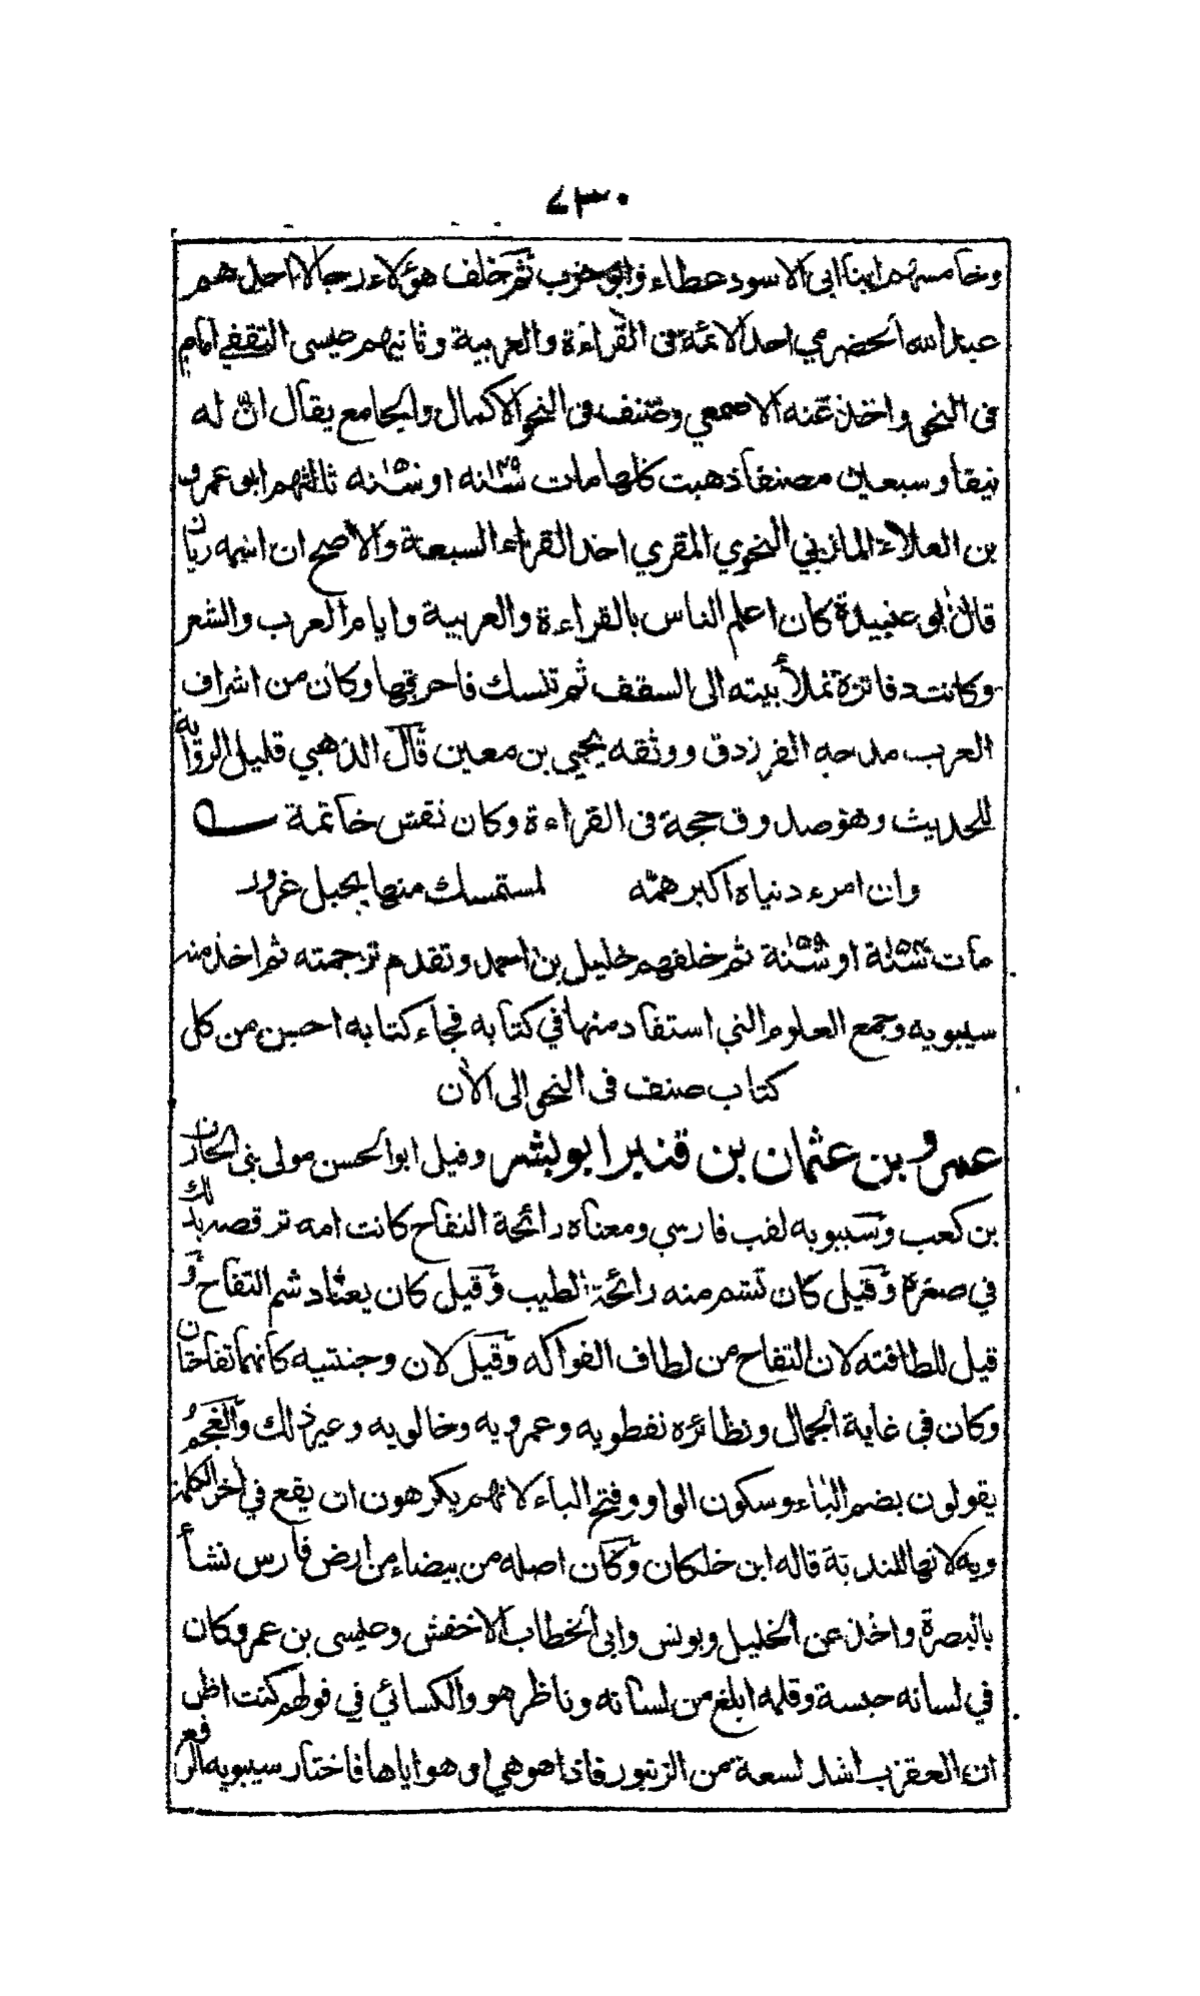 ٧٣٠
وخامسهم ابنا ابى الاسود عطاء وابو حرب ثم خلف هؤلاء رجالا احدهم
عبد الله الحضرمي احد الائمة فى القراءة والعربية وثانيهم عيسى الثقفي امام
فى النحو واخذ عنه الاصمعي وصنف فى النحو الاكمال والجامع يقال ان له
نيفا وسبعين مصنفا ذهبت كلها مات ١٤٩سنه او ١٥٠سنه ثالثهم ابو عمرو
بن العلاء المازني النحوي المقري احد القراء السبعة والاصح ان اسمه ريان
قال ابو عبيدة كان اعلم الناس بالقراءة والعربية وايام العرب والشعر
وكانت دفاتره تملأ بيته الى السقف ثم تنسك فاحرقها وكان من اشراف
العرب مدحه الفرزدق ووثقه يحيي بن معين قال الذهبي قليل الرواية
للحديث وهو صدوق حجة فى القراءة وكان نقش خاتمة
وان امرء دنياه اكبر همه لمستمسك منها بحبل غرور
مات ١٥٤سنة او ١٥٩سنة ثم خلفهم خليل بن احمد وتقدم ترجمته ثم اخذ منه
سيبويه وجمع العلوم التي استفاد منها في كتابه فجاء كتابه احسن من كل
كتاب صنف فى النحو الى الآن
عمرو بن عثمان بن قنبر ابو بشر وقيل ابو الحسن مولى بنى الحارث
بن كعب وسيبويه لقب فارسي ومعناه رائحة التفاح كانت امه ترقصه بذلك
في صغره وقيل كان تشم منه رائحة الطيب وقيل كان يعتاد شم التفاح و
قيل للطافته لان التفاح من لطاف الفواكه وقيل لان وجنتيه كانهما تفاحتان
وكان فى غاية الجمال ونظائره نفطويه وعمرويه وخالويه وغير ذلك والعجم
يقولون بضم الباء وسكون الواو وفتح الياء لانهم يكرهون ان يقع في اخر الكلمة
ويه لانها للندبة قاله ابن خلكان وكان اصله من بيضاء من ارض فارس نشأ
بالبصرة واخذ عن الخليل ويونس وابى الخطاب الاخفش وعيسى بن عمر وكان
في لسانه حبسة وقلمه ابلغ من لسانه وناظر هو والكسائي في قولهم كنت اظن
ان العقرب اشد لسعة من الزنبور فاذا هو هي او هو اياها فاختار سيبويه الرفع